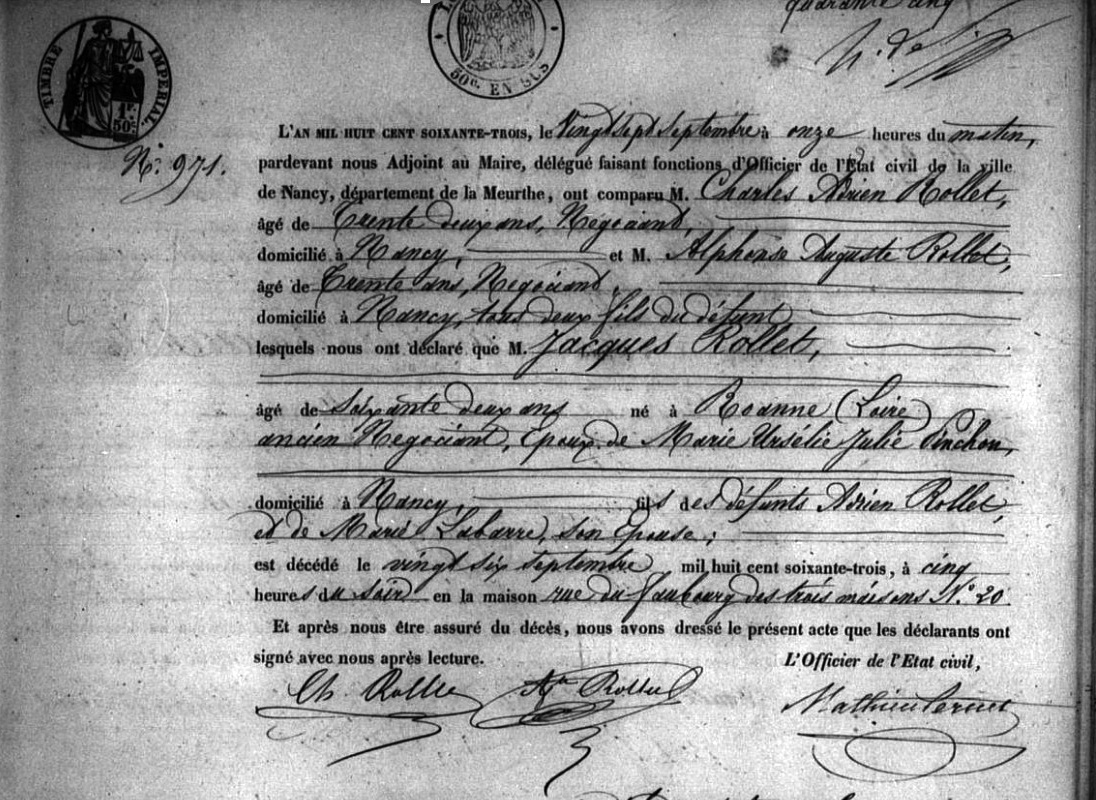 quarante cinq
TIMBRE IMPERIAL
1f.
50c.
50c. EN SUS
L'AN MIL HUIT CENT SOIXANTE-TROIS, le Vingt sept septembre à onze heures du matin,
N.° 971.
pardevant nous Adjoint au Maire, délégué faisant fonctions d'Officier de l'État civil de la ville
de Nancy, département de la Meurthe, ont comparu M. Charles Adrien Rollet,
âgé de Trente deux ans, Negociant,
domicilié à Nancy, et M. Alphonse Auguste Rollet,
âgé de Trente ans, Negociant,
domicilié à Nancy, tous deux fils du défunt
lesquels nous ont déclaré que M. Jacques Rollet,
âgé de soixante deux ans né à Roanne (Loire)
ancien Negociant, Epoux de Marie Ursélie Julie Pinchon,
domicilié à Nancy, fils des défunts Adrien Rollet,
et de Marie Labarre, son Epouse ;
est décédé le vingt six septembre mil huit cent soixante-trois, à cinq
heures du soir en la maison rue du faubourg des trois maisons N.° 20
Et après nous être assuré du décès, nous avons dressé le présent acte que les déclarants ont
signé avec nous après lecture. L'Officier de l'Etat civil,
Ch. Rollet Ate Rollet